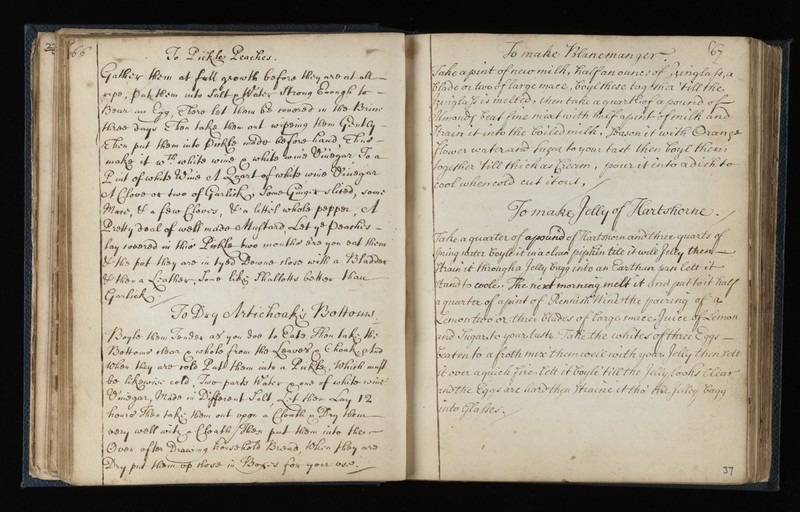 66
To Pickle Peaches.
Gather them at full growth before they are at all
ripe, Put them into Salt & Water Strong Enough to
Bear an Egg, There let them be covered in the Brine
three days Then take them out wipeing them Gently
Then put them into Pickle made before hand Thus
make it wth white wine & white wine Vinegar To a
Pint of white Wine A Quart of white wine Vinegar
A Clove or two of Garlick, Some Ginger sliced, some
Mace, & a few Cloves, & a little whole pepper, A
Pretty deal of well made Mustard, Let ye Peaches
lay covered in this Pickle two months ere you eat them
& the pot they are in tyed Downe close with a Bladder
& then a Leather. Some like Shallotts better than
Garlick.
To Dry Artichoak's Bottoms.
Boyle them Tender as you doe to Eate Then take the
Bottoms clear & whole from the Leaves & Choak, And
when they are cold Put them into a Pickle, which must
be likewise cold, Two parts Water & one of white wine
Vinegar, Made in Different Salt, Let them Lay 12
hours Then take them out upon a Cloath & Dry them
very well with a Cloath, Then put them into the
Oven after Drawing household Bread, When they are
Dry put them up close in Boxes for your use.
67
To make Blancmanger
Take a pint of new milk, half an ounce of Izinglass, a
blade or two of large mace, boyl these together till the
Izinglass is melted, then take a quarter of a pound of
Almonds beat fine mixt with half a pint of milk and
strain it into the boiled milk. Season it with Orange
flower water and sugar to your tast then boyl them
together 'till thick as Cream, pour it into a dish to
cool when cold cut it out,
To make Jelly of Hartshorne.
Take a quarter of a pound of Hartshorn and three quarts of
Spring water boyle it in a clean pipkin till it will Jelly then
strain it through a Jelly bagg into an Earthan pan lett it
stand to coole. The next morneng melt it and put to it half
a quarter of a pint of Rennish Wine the paireing of a
Lemon two or three blades of large mace Juice of Lemon
and Sugar to your taste Take the whites of three Eggs
beaten to a froth mix them well with your Jelly then sett
it over a quick fire lett it boyle till the Jelly looks clear
and the Eggs are hard then straine it thro' the Jelley bagg
into Glasses.
37